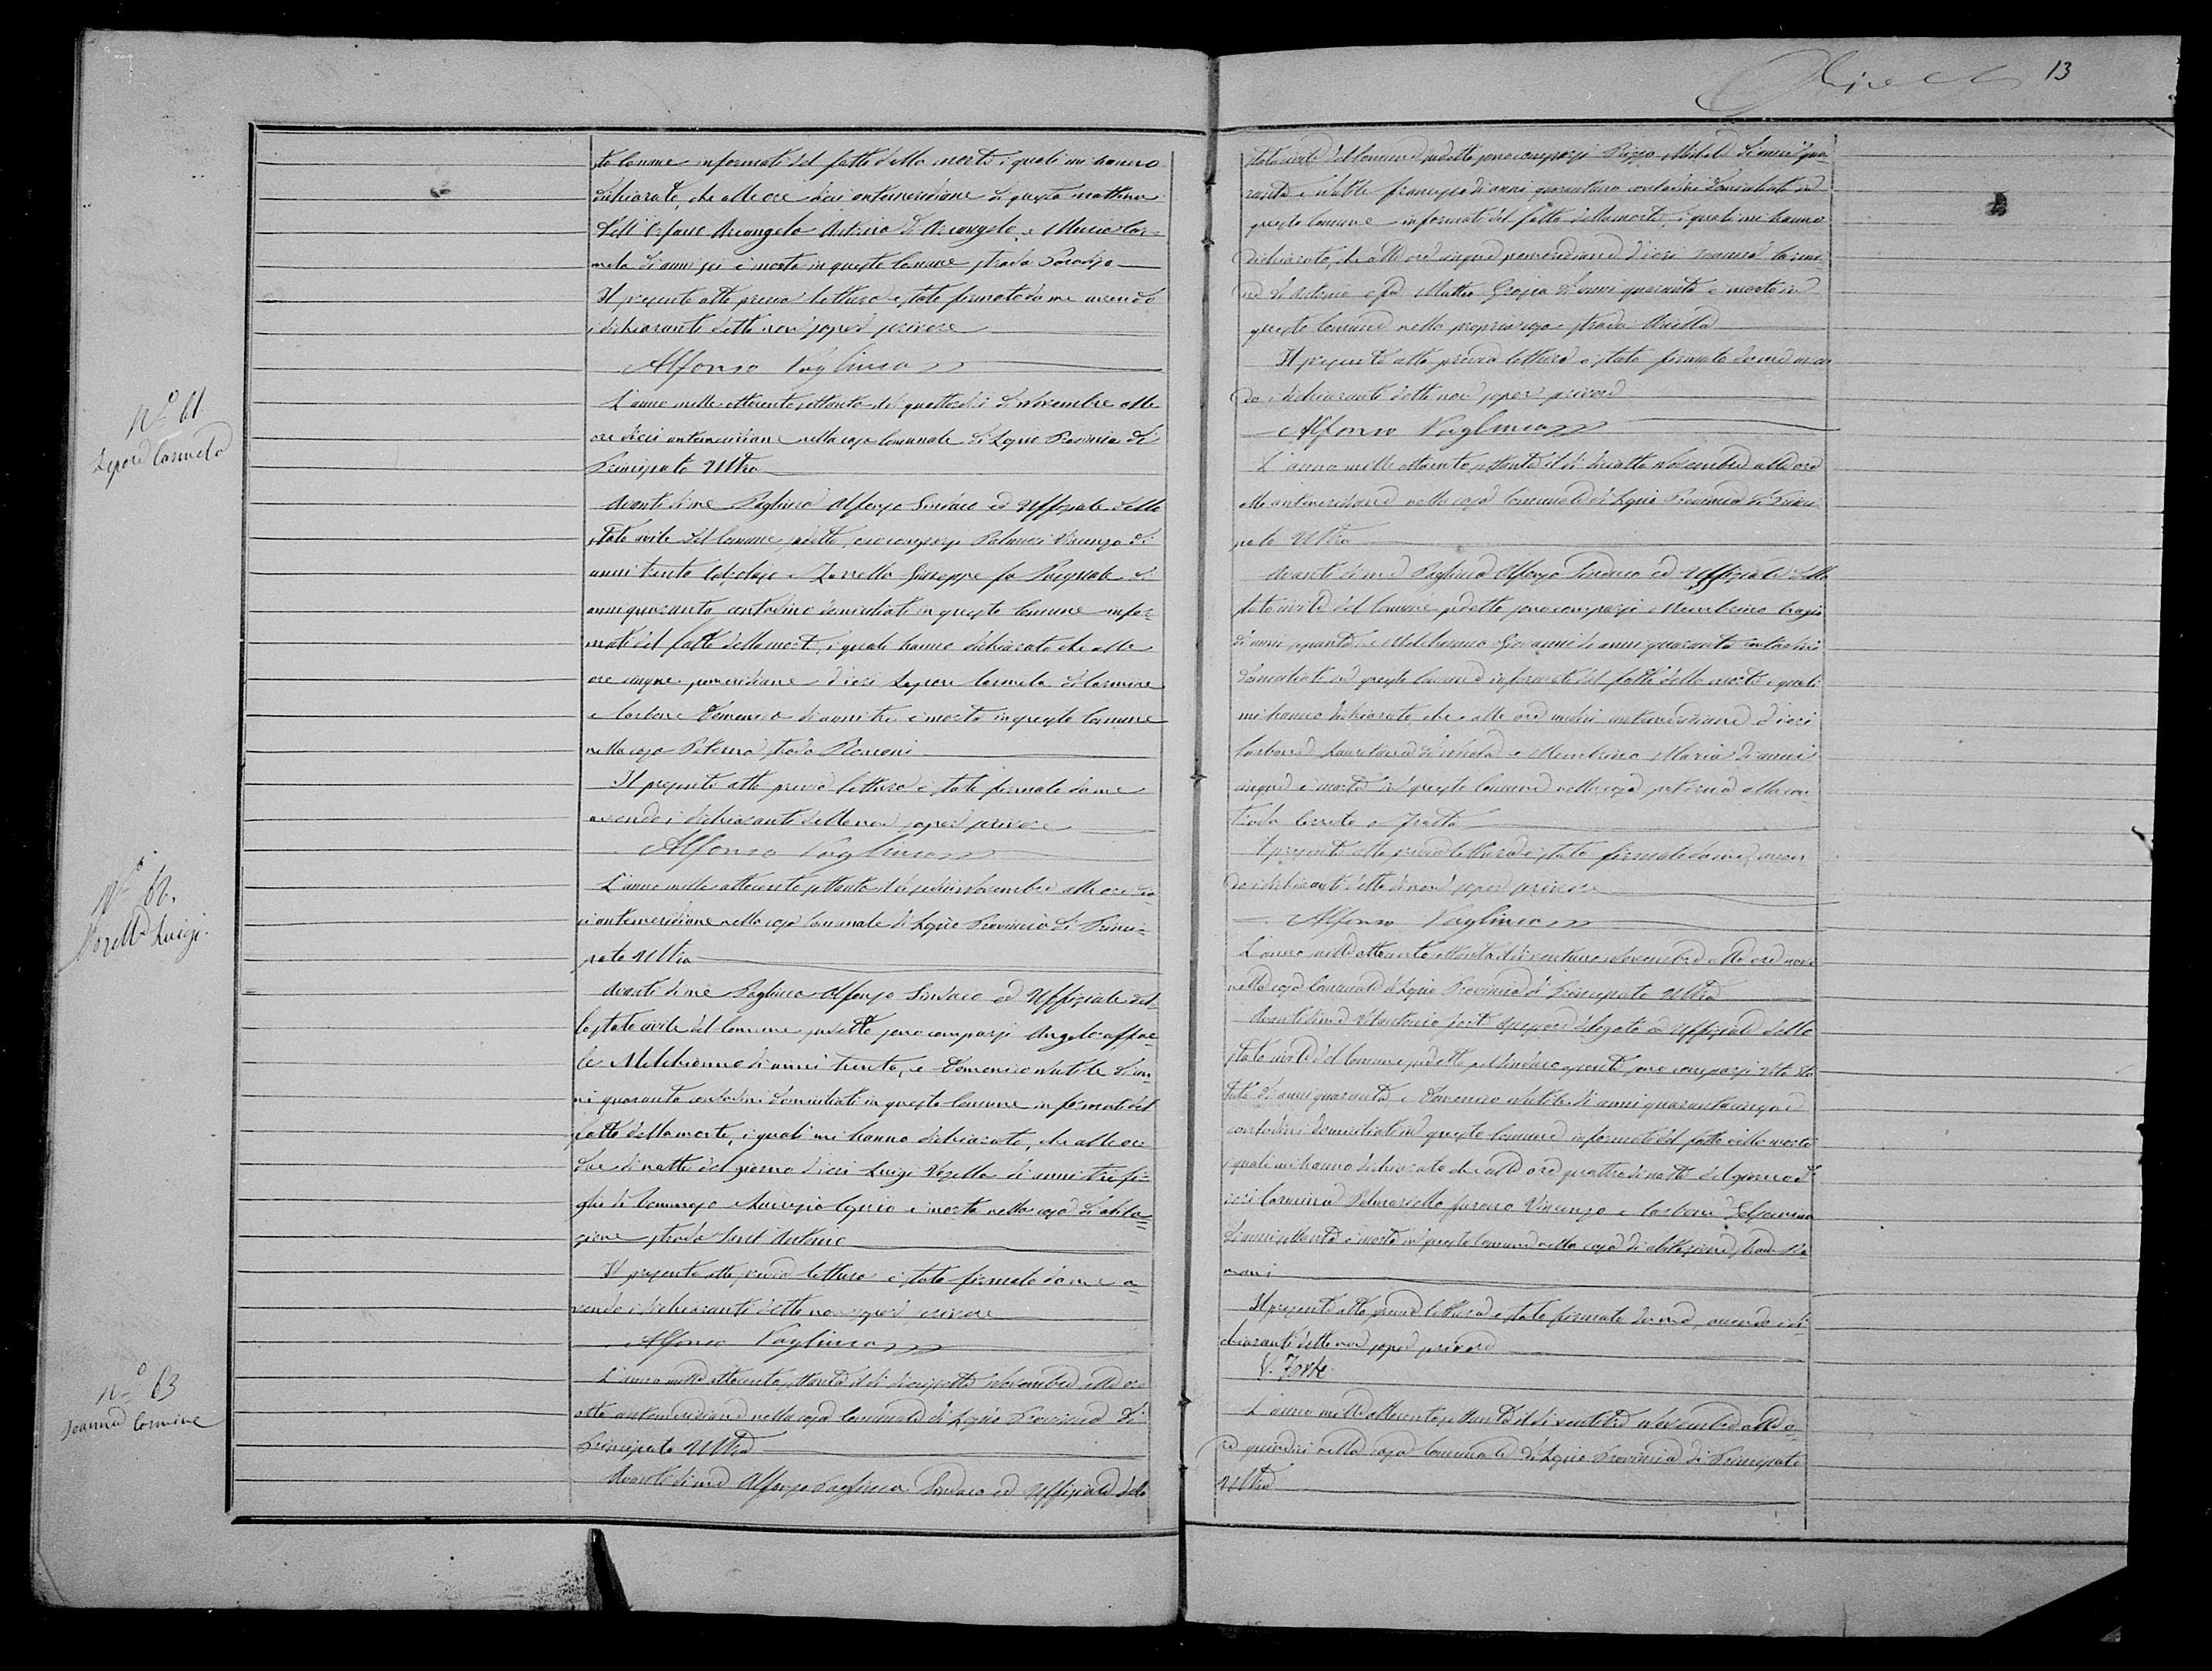 13
to Comune informati del fatto della morte i quali mi hanno
dichiarato, che alle ore dieci antemeridiane di questa mattina
Dell'Orfano Arcangela Antonia di Arcangelo, e Maria Car-
mela di anni sei è morta in questo Comune strada Paradiso
Il presente atto previa lettura è stato firmato da me avendo
i dichiaranti detto non saper scrivere
Alfonso Pagliuca
N.° 61
Lepore Carmela
L'anno mille ottocento settanta il dì quattordici di Novembre alle
ore dieci antemeridiane nella casa Comunale di Provincia di
Principato Ultra
Avanti di me Pagliuca Alfonso Sindaco ed Uffiziale dello
stato civile del Comune sudetto, sono comparsi Palmieri Vincenzo di
anni trenta calzolajo e Zarrella Giuseppe fu Pasquale di
anni quaranta contadino domiciliati in questo Comune infor-
mati del fatto della morte, i quali hanno dichiarato che alle
ore cinque pomeridiane di ieri Lepore Carmela di Carmine
e Carbone Domenica di anni tre è morta in questo Comune
nella casa Paterna strada Romani
Il presente atto previa lettura è stato firmato da me
avendo i dichiaranti detto non saper scrivere
Alfonso Pagliuca
N.° 62.
Vozella Luigi.
L'anno mille ottocento settanta il dì sedici Novembre alle ore die
ci antemeridiane nella casa Comunale di Provincia di Princi-
pato Ultra
Avanti di me Pagliuca Alfonso Sindaco ed Uffiziale del-
lo stato civile del Comune sudetto sono comparsi Angelo Raffae-
le Melchionno di anni trenta, e Domenico Natale di an-
ni quaranta contadini domiciliati in questo Comune informati del
fatto della morte, i quali mi hanno dichiarato, che alle ore
due di notte del giorno di ieri Luigi Vozella di anni tre fi-
glio di Tommaso e è morto nella casa di abita-
zione strada Sant'Antonio
Il presente atto previa lettura è stato firmato da me a-
vendo i dichiaranti detto non saper scrivere
Alfonso Pagliuca
N.° 63
Ioanna Carmine
L'anno mille ottocento settanta il dì diciasette Novembre alle ore
otto antemeridiane nella casa Comunale di Provincia di
Principato Ultra
Avanti di me Alfonso Pagliuca Sindaco ed Uffiziale dello
stato civile del Comune sudetto sono comparsi Pizza Michele di anni qua-
ranta e Natale Francesco di anni quarantuno contadini domiciliati in
questo Comune informati del fatto della morte, i quali mi hanno
dichiarato, che alle ore cinque pomeridiane di ieri Carmi
ne di Antonio e fu Mattia Grazia di anni quaranta è morto in
questo Comune nella propria casa strada
Il presente atto previa lettura è stato firmato da me aven
do i dichiaranti detto non saper scrivere
Alfonso Pagliuca
L'anno mille ottocento settanta il dì diciotto Novembre alle ore
otto antemeridiane nella casa Comunale di Provincia di Princi
pato Ultra
Avanti di me Pagliuca Alfonso Sindaco ed Uffiziale dello
stato civile del Comune sudetto sono comparsi Membrino
di anni e Melchionno Giovanni di anni quaranta contadini
domiciliati in questo Comune informati del fatto della morte i quali
mi hanno dichiarato che alle ore undici antemeridiane di ieri
Carbone di Nicola e Membrino Maria di anni
cinque è morta in questo Comune nella casa paterna alla con
trada Cerreto
Il presente atto previa lettura è stato firmato da me, aven
do i dichiaranti detto di non saper scrivere
Alfonso Pagliuca
L'anno mille ottocento settanta il dì ventuno Novembre alle ore nove
nella casa Comunale di Provincia di Principato Ultra
Avanti di me Vitantonio Forte Assessore delegato ed Uffiziale dello
stato civile del Comune sudetto pel Sindaco assente sono comparsi Vito
di anni quaranta e Domenico Natale di anni quarantacinque
contadini domiciliati in questo Comune informati del fatto della morte
i quali mi hanno dichiarato che alle ore quattro di notte del giorno di
ieri Carmina Vincenzo e Carbone
di anni settanta è morta in questo Comune nella casa di abitazione strada Ro
mani
Il presente atto previa lettura è stato firmato da me, avendo i di-
chiaranti detto non saper scrivere
V. Forte
L'anno mille ottocento settanta il dì ventitre Novembre alle o-
re quindici nella casa Comunale di Provincia di Principato
Ultra